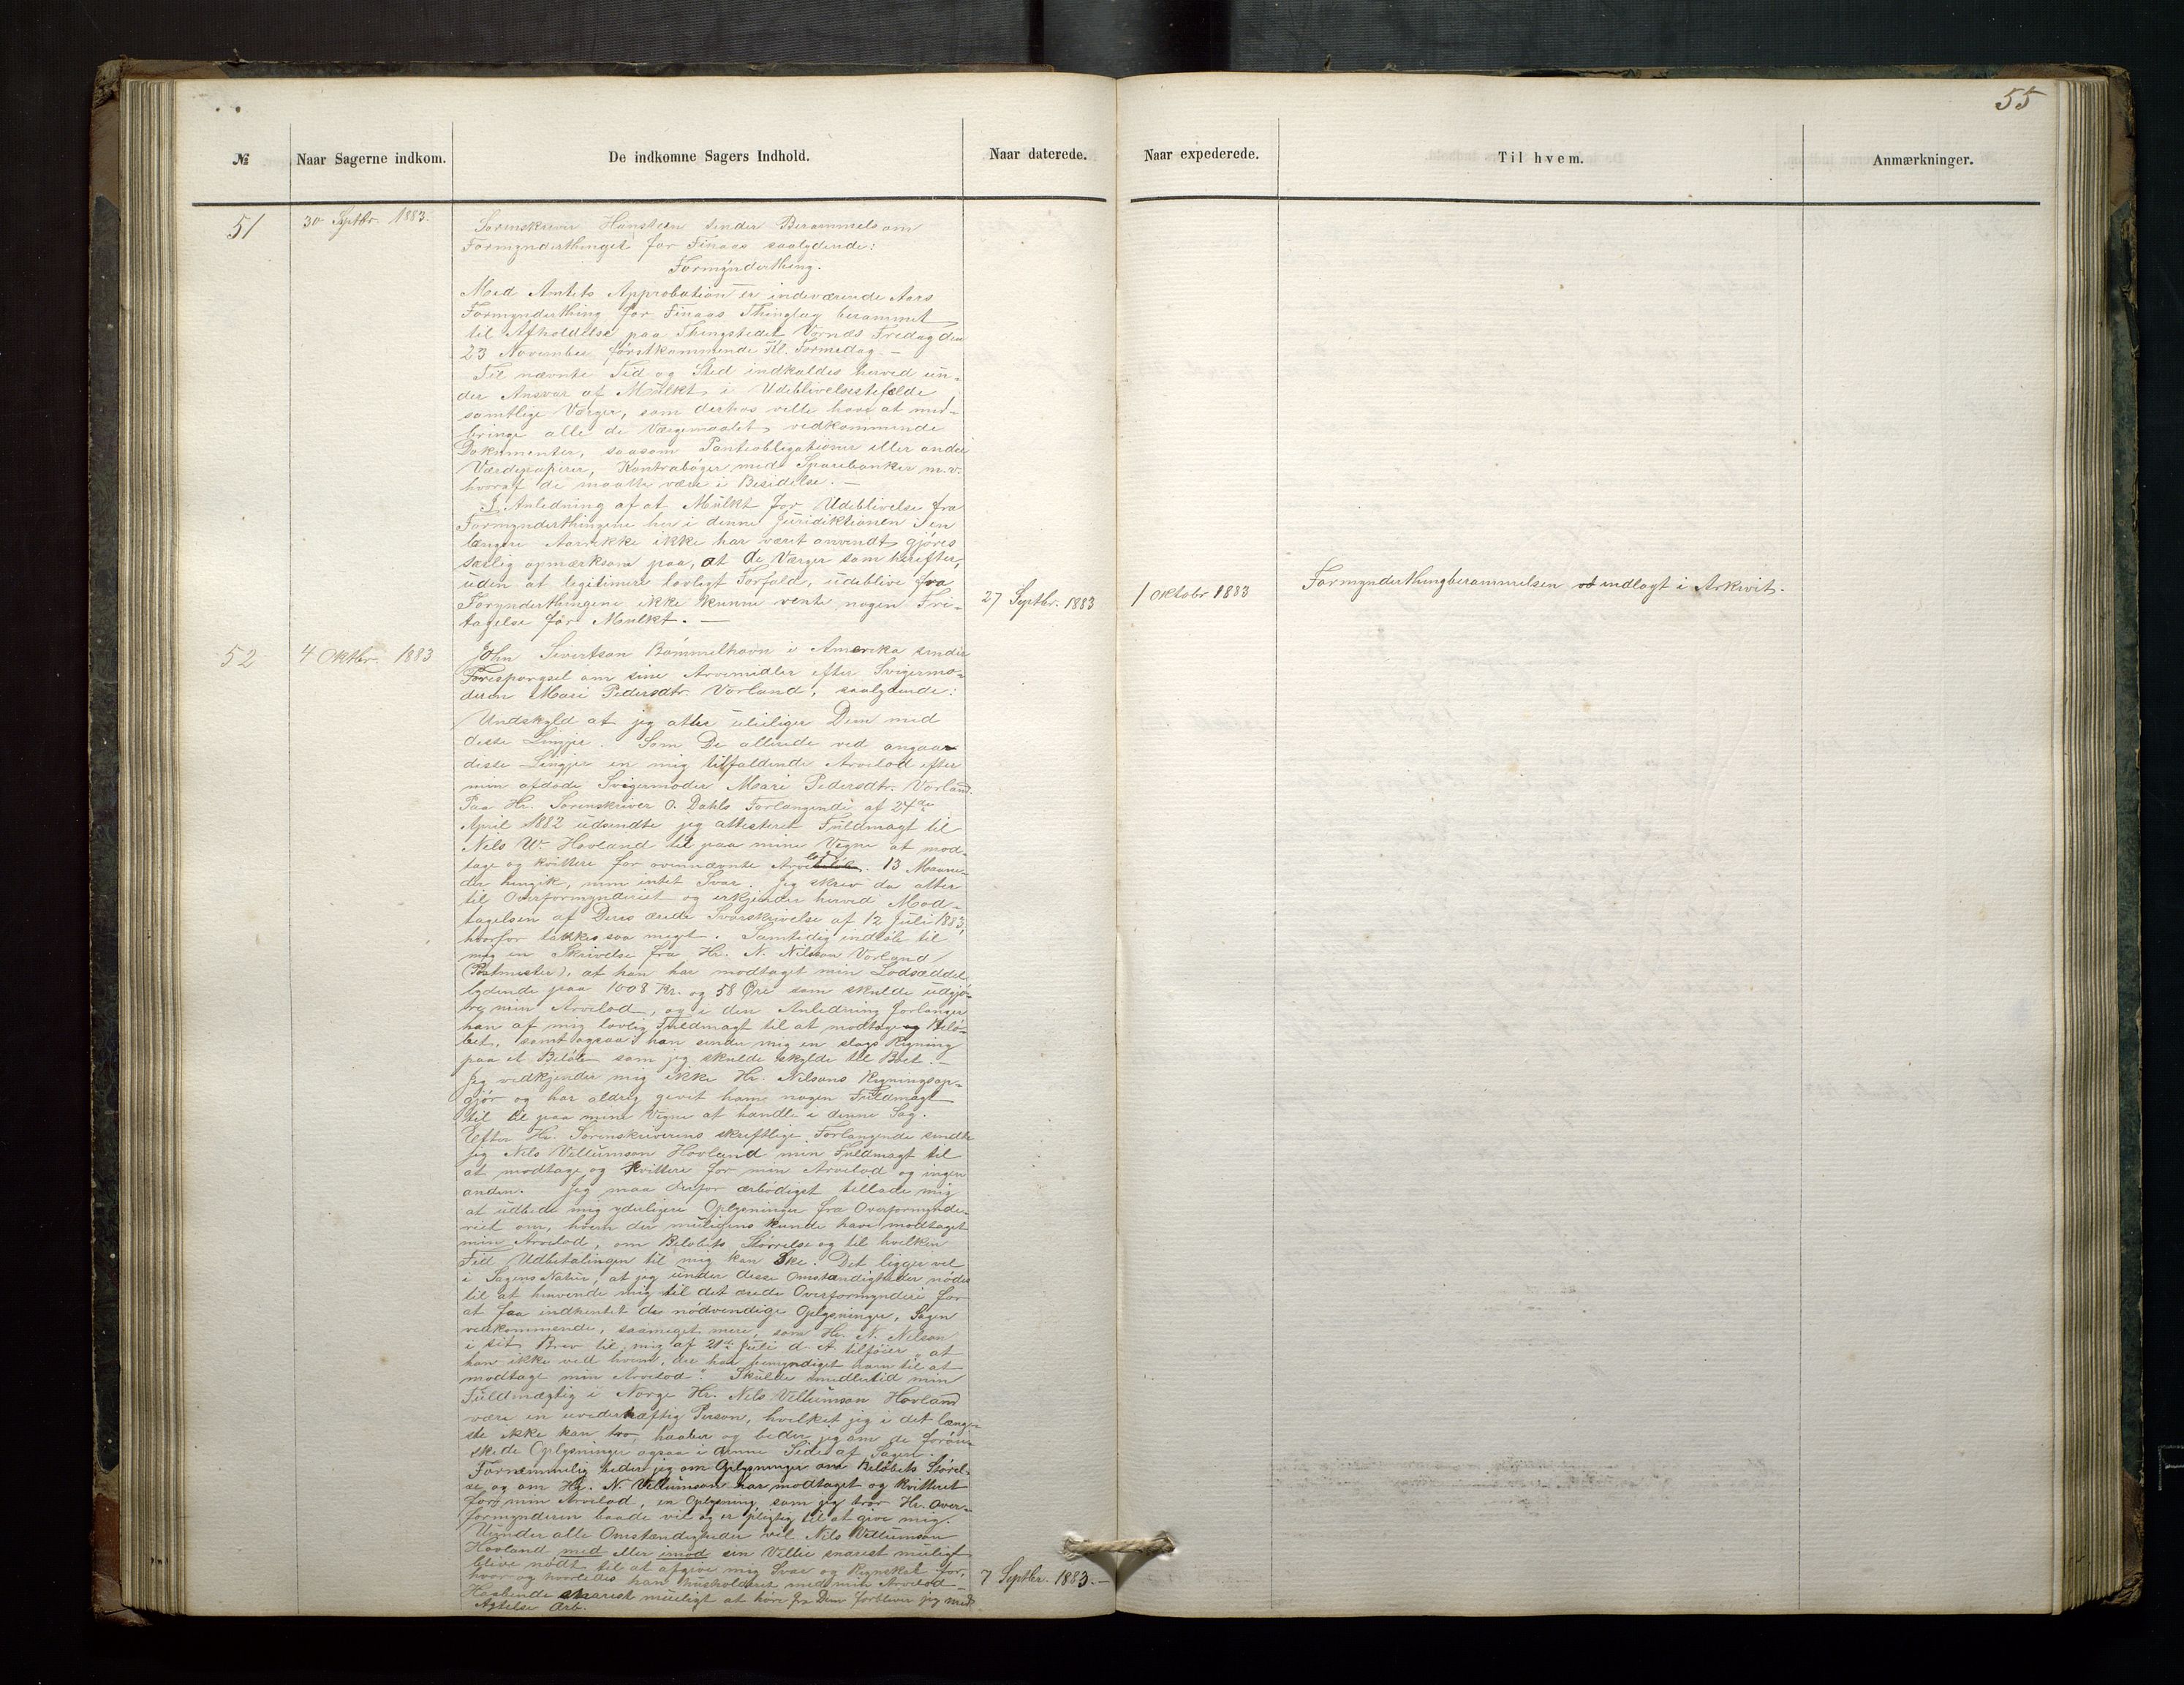 55
№ Naar Sagerne indkom. De indkomne Sagers Indhold. Naar daterede. Naar expederede. Til hvem. Anmærkninger.
51 30 Septbr. 1883.
Sorenskriver Hansteen sender Berammels om
Formynderthinget for Finaas saalydende:
Formynderthing.
Med Amtets Approbation er indeværende Aars
Formynderthing for Finaas Thinglag berammet
til Afholdelse paa Thingstedet Vornæs Fredag den
23 November førstkommende Kl. Formedag. –
Til nævnte Tid og Sted indkaldes herved un-
der Ansvar af Mulkt i Udeblivelsestefælde
samtlige Værger, som derhos ville have at med-
bringe alle de Værgemaalet vedkommende
Dokumenter, saasom Panteobligationer eller andre
Værdipapirer, Kontrabøger med Sparebanker m.v.
hvoraf de maatte være i Besidelse. –
I Anledning af at Mulkt for Udeblivelse fra
Formynderthingene her i denne Juridiktionen i en
længere Aarrekke ikke har været anvendt, gjøres
særlig opmærksom paa, at de Værger som herefter,
uden at legitimere lovligt Forfald, udeblive fra
Forynderthingene ikke kunne vente nogen Fri-
tagelse for Mulkt. –
27 Septbr. 1883 1 Oktobr 1883 Formynderthingberammelsen indlagt i Arkivit.
52 4 Oktbr. 1883
John Sivertson Bømmelhavn i Amerika sender
Forespørgsel om sine Arvemidler efter Svigermo-
deren Mari Pedersdtr. Vorland, saalydende:
Undskyld at jeg atter uleiliger Dem med
disse Linjer. Som De allerede ved angaar
disse Linjer en mig tilfaldende Arvelod efter
min afdøde Svigermoder Mari Pedersdtr. Vorland.
Paa Hr. Sorenskriver O. Dahls Forlangende af 24de
April 1882 udsendte jeg attesteret Fuldmagt til
Nils W. Hovland til paa mine Vegne at mod-
tage og kvittere for ovennævnte Arvelod. 13 Maane-
der hengik, men intet Svar. Jeg skrev da atter
til Overformynderiet og erkjender herved Mod-
tagelsen af Deres ærede Svarskrivelse af 12 Juli 1883,
hvorfor takkes saa meget. Samtidig indløb til
mig en Skrivelse fra Hr. N. Nilsson Vorland
(Postmester), at han har modtaget min Lodseddel
lydende paa 1008 Kr. og 58 Øre som skulde udgjø-
re min Arvelod, og i den Anledning forlanger
han af mig lovlig Fuldmagt til at modtage Belø-
bet, samt ogsaa han sender mig en slags Regning
paa et Beløb som jeg skulde skylde til Boet. –
Jeg vedkjender mig ikke Hr. Nilsons Regningsop-
gjør og har aldrig givet ham nogen Fuldmagt
til at paa mine Vegne at handle i denne Sag.
Efter Hr. Sorenskriverens skriftlige Forlangende sendte
jeg Nils Villumson Hovland min Fuldmagt til
at modtage og kvittere for min Arvelod og ingen
anden. Jeg maa derfor ærbødigst tillade mig
at udbede mig yderligere Oplysninger fra Overformynde-
riet om, hvem der muligens kunde have modtaget
min Arvelod, om Beløbets Størrelse og til hvilken
Tid Udbetalingen til mig kan Ske. Det ligger vel
i Sagens Natur, at jeg under disse Omstændigheder nødes
til at henvende mig til det ærede Overformynderi for
at faa indhentet de nødvendige Oplysninger, Sagen
vedkommende, saameget mere, som Hr. N. Nilson
i sit Brev til mig af 21de Juli d. A. tilføier „at
han ikke ved hvem, der har bemyndiget ham til at
modtage min Arvelod". Skulde imidlertid min
Fuldmægtig i Norge Hr. Nils Villumson Hovland
være en uvederhæftig Person, hvilket jeg i det læng-
ste ikke kan tro, haaber og beder jeg om de forøn-
skede Oplysninger ogsaa i denne Side af Sagen.
Fornemmelig beder jeg om Oplysninger om Beløbets Størel-
se og om Hr. N. Villumson har modtaget og kvitteret
for min Arvelod, en Oplysning, som jeg tror Hr. Over-
formynderen baade vil og er pligtig til at give mig.
Uunder alle Omstændigheder vil Nils Willumson
Hovland med eller imod sin Villie snarest muligt
blive nødt til at afgive mig Svar og Regnskab for,
hvor og hvorledes han husholderet med min Arvelod –
Haabende snarest muligt at høre fra Dem forbliver jeg med
Agtelse Ærb.
7 Septbr. 1883. –